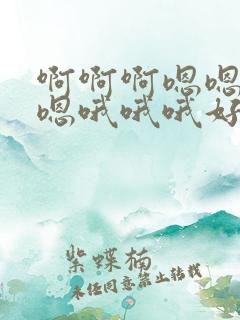 啊啊啊嗯嗯
嗯哦哦哦好
紫蝶楠
未经同意禁止转载